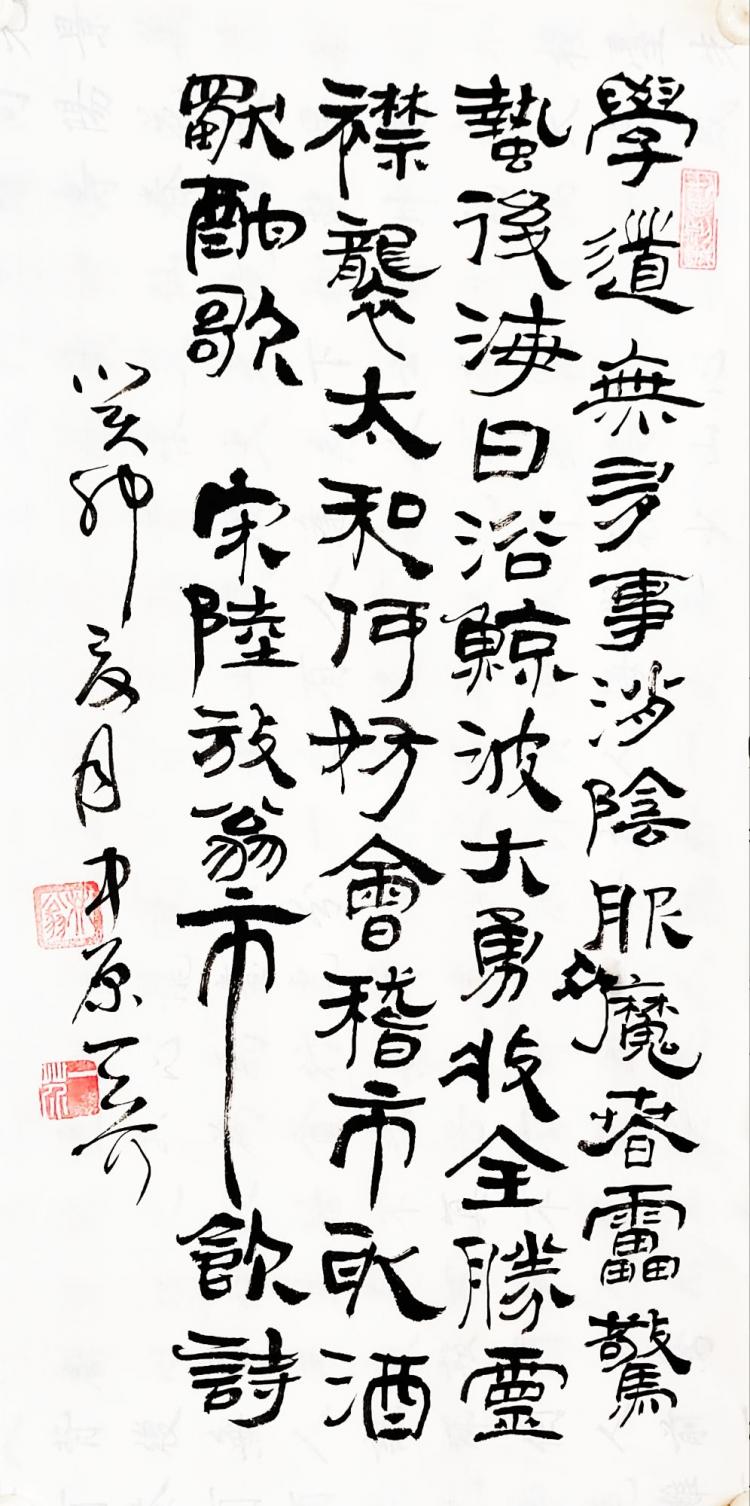 學道無多事消陰服眾魔春雷驚
蟄後海日浴鯨波大勇收全勝靈
襟襲太和何妨會稽市取酒
獻酬歌 宋陸放翁市飲詩
癸卯夏月中原